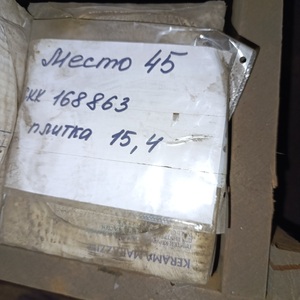 Место 45
КК 168863
плитка 15,4
KERAMA MARAZZI